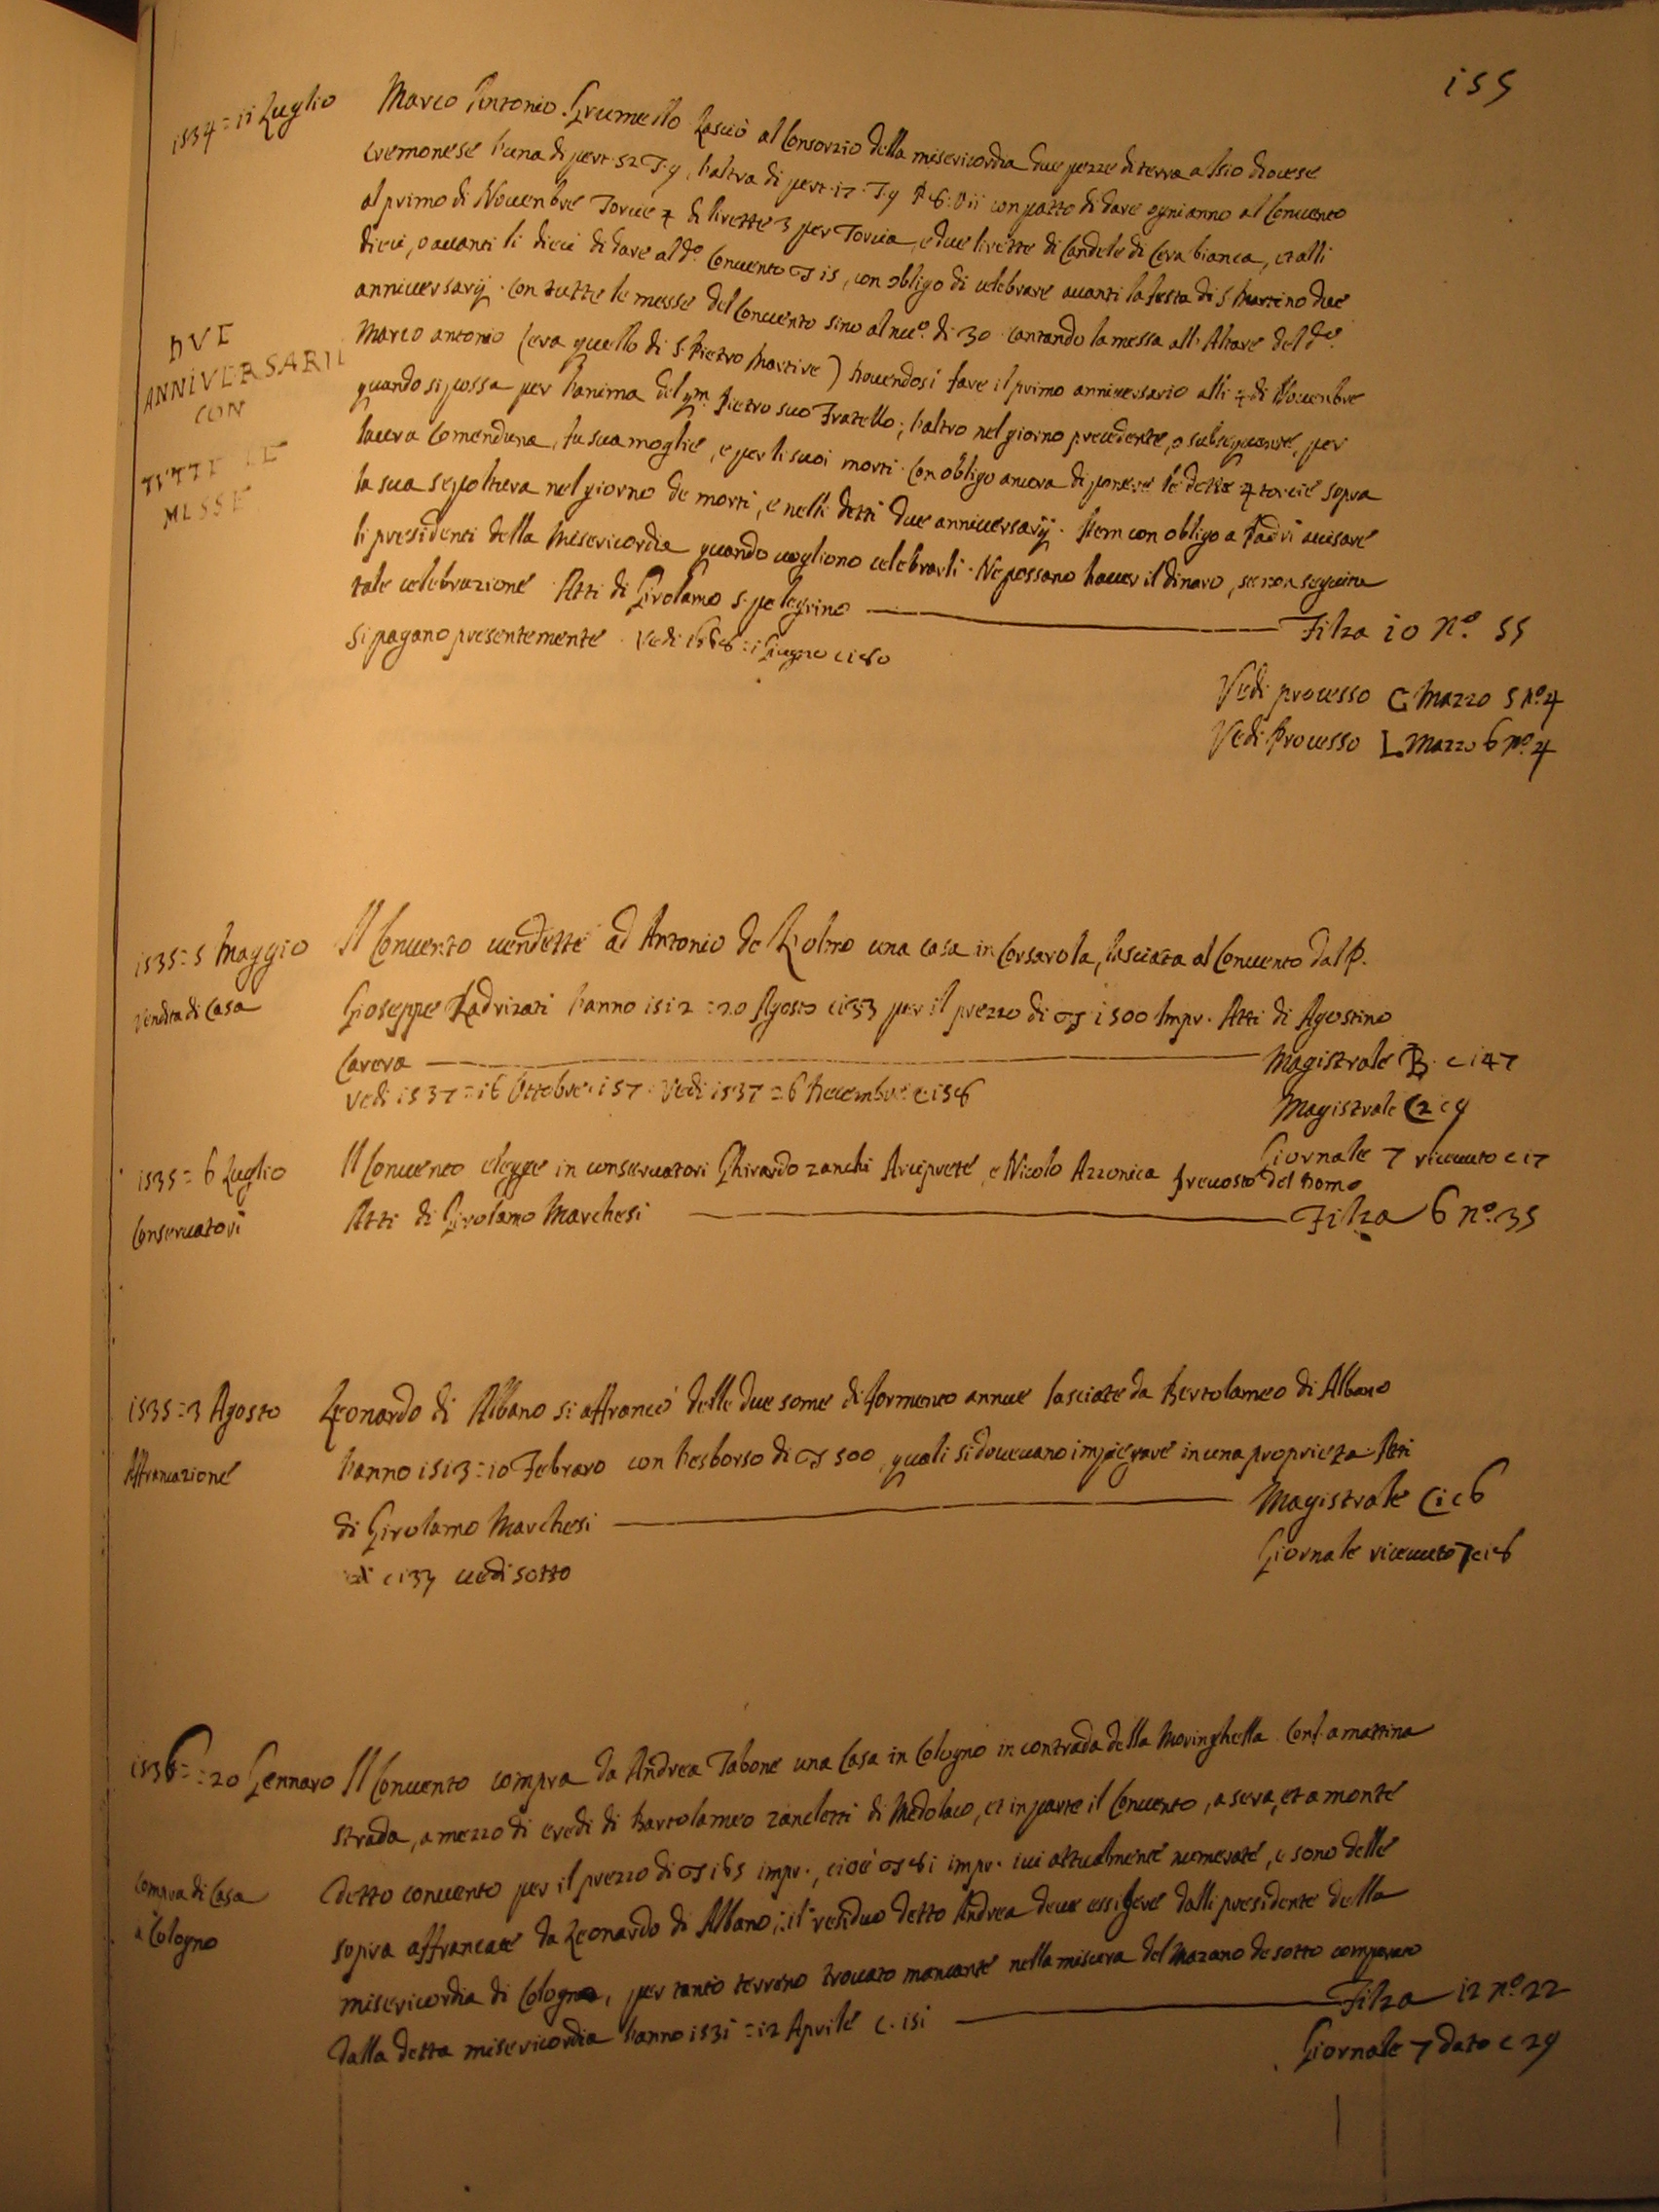 155
1534 = 11 Luglio
Marco Antonio Grumello lasciò al Consorzio della misericordia due pezze di terra a Isso diocese
cremonese l'una di pert. 52 T. 9, l'altra di pert. 17. T. 9 con patto di dare ogni anno al Convento
al primo di Novembre Torcie 4 di lirette 3 per Torcia, e due lirette di Candele di Cera bianca, et alli
dieci, o avanti li dieci di dare al do. Convento 15, con obligo di celebrare avanti la festa di S. Martino due
anniversarij con tutte le messe del Convento sino al nuo. di 30 cantando la messa all'Altare del do.
DVE
ANNIVERSARII
CON
TVTTE LE
MESSE
Marco antonio (era quello di S. Pietro Martire) dovendosi fare il primo anniversario alli 4 di Novembre
quando si possa per l'anima del qm. Pietro suo Fratello; l'altro nel giorno precedente, o subsequente, per
Comenduna, fu sua moglie, e per li suoi morti. Con obligo ancora di ponere le dette 4 torcie sopra
la sua sepoltura nel giorno de morti, e nelli detti due anniversarij. Item con obligo a Padri avisare
li presidenti della Misericordia quando vogliono celebrarli. Ne possano haver il dinaro, se non seguita
tale celebrazione. Atti di Girolamo S. pelegrino Filza 10 no. 55
si pagano presentemente. Vedi
Vedi processo C Mazzo 5 no. 4
Vedi Processo L Mazzo 6 no. 4
1535 = 5 Maggio
Vendita di Casa
Il Convento vendette ad Antonio de L'olmo una casa in Corsarola, lasciata al Convento dal P.
Gioseppe Ladrizati l'anno 1512 = 20 Agosto c 133 per il prezzo di 1500 Impr. Atti di Agostino
Carera Magistrale B. c 147
Vedi 1537 = 16 Ottobre c 157. Vedi 1537 = 6 Decembre c 158
Magistrale C 2 c 9
Giornale 7 ricevuto c 17
1535 = 6 Luglio
Conservatori
Il Convento elegge in conservatori Ghirardo zanchi Arciprete, e Nicolo Azzonica prevosto del Domo
Atti di Girolamo Marchesi Filza 6 no. 35
1535 = 3 Agosto
Affrancazione
Leonardo di Albano si affrancò delle due some di formento annue lasciate da Bertolameo di Albano
l'anno 1513 = 10 Febraro con l'esborso di 500, quali si dovevano impiegare in una proprietà. Atti
di Girolamo Marchesi Magistrale C 1 c 6
Giornale ricevuto 7 c 18
c 139 vedi sotto
1536 = 20 Gennaro
Compra di Casa
a Cologno
Il Convento compra da Andrea Tabone una Casa in Cologno in contrada della Moringhella. Conf. a mattina
strada, a mezzo di eredi di Bartolameo zancletti di Medolaco, et in parte il Convento, a sera, et a monte
detto convento per il prezzo di 165 impr., cioè 81 impr. ivi attualmente numerate, e sono delle
sopra affrancate da Leonardo di Albano; il residuo detto Andrea deve essigere dalli presidente della
misericordia di Cologno, per tanto terreno trovato mancante nella misura del Mazano de sotto comparato
dalla detta misericordia l'anno 1531 = 12 Aprile c. 151 Filza 12 no. 22
Giornale 7 dato c 29